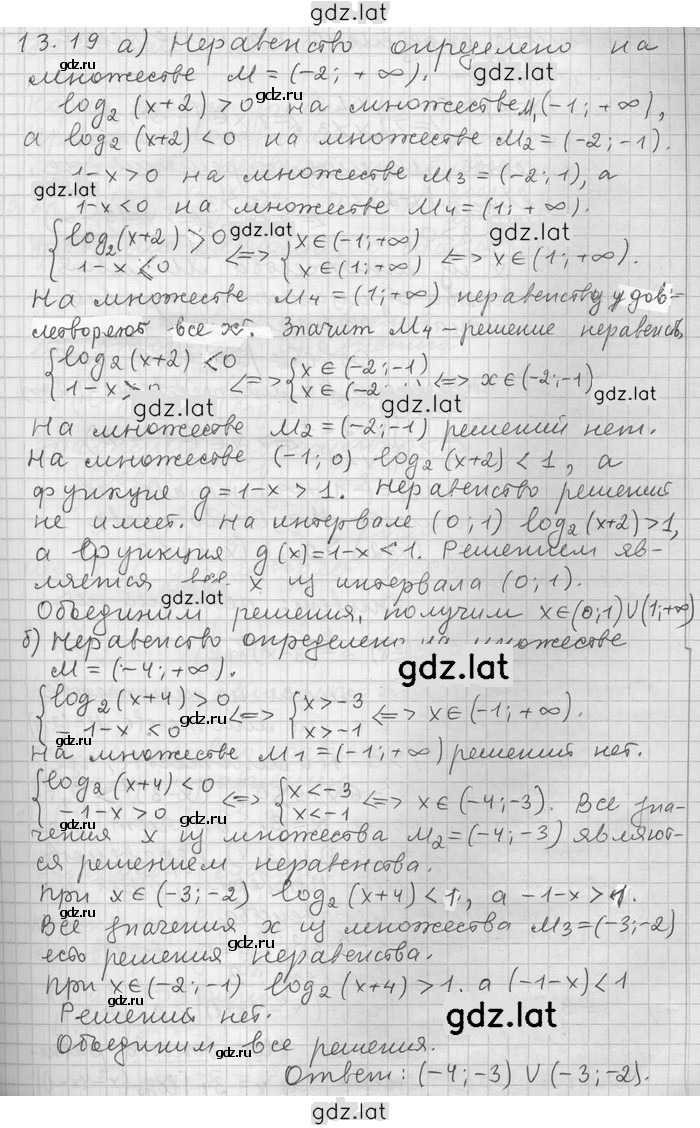 gdz.lat
13.19 а) Неравенство определено на
множестве M = (-2; +∞). gdz.lat
log₂(x+2) > 0 на множестве M₁ (-1; +∞),
а log₂(x+2) < 0 на множестве M₂ = (-2; -1).
1-x > 0 на множестве M₃ = (-2; 1), а
gdz.lat
1-x < 0 на множестве M₄ = (1; +∞).
{ log₂(x+2) > 0 gdz.lat { x ∈ (-1; +∞)
1-x < 0 <=> x ∈ (1; +∞) <=> x ∈ (1; +∞).
На множестве M₄ = (1; +∞) неравенству удов-
летворяют все x. Значит M₄ - решение неравенств,
{ log₂(x+2) < 0 { x ∈ (-2; -1)
1-x > 0 <=> x ∈ (-2 <=> x ∈ (-2; -1)
gdz.lat gdz.lat gdz.lat
На множестве M₂ = (-2; -1) решений нет.
На множестве (-1; 0) log₂(x+2) < 1, а
функция g = 1-x > 1. Неравенство решений
не имеет. На интервале (0; 1) log₂(x+2) > 1,
а функция g(x) = 1-x < 1. Решением яв-
ляется все x из интервала (0; 1).
gdz.lat
Объединим решения, получим x ∈ (0; 1) ∪ (1; +∞)
б) Неравенство определено на множестве
M = (-4; +∞). gdz.lat
{ log₂(x+4) > 0 { x > -3
-1-x < 0 <=> x > -1 <=> x ∈ (-1; +∞).
gdz.lat
На множестве M₁ = (-1; +∞) решений нет.
{ log₂(x+4) < 0 { x < -3
-1-x > 0 <=> x < -1 <=> x ∈ (-4; -3). Все зна-
gdz.lat gdz.lat
чения x из множества M₂ = (-4; -3) являют-
ся решением неравенства.
При x ∈ (-3; -2) log₂(x+4) < 1, а -1-x > 1.
gdz.lat
Все значения x из множества M₃ = (-3; -2)
есть решения неравенства.
gdz.lat
При x ∈ (-2; -1) log₂(x+4) > 1. а (-1-x) < 1
Решений нет. gdz.lat
Объединим все решения.
Ответ: (-4; -3) ∪ (-3; -2).
gdz.lat